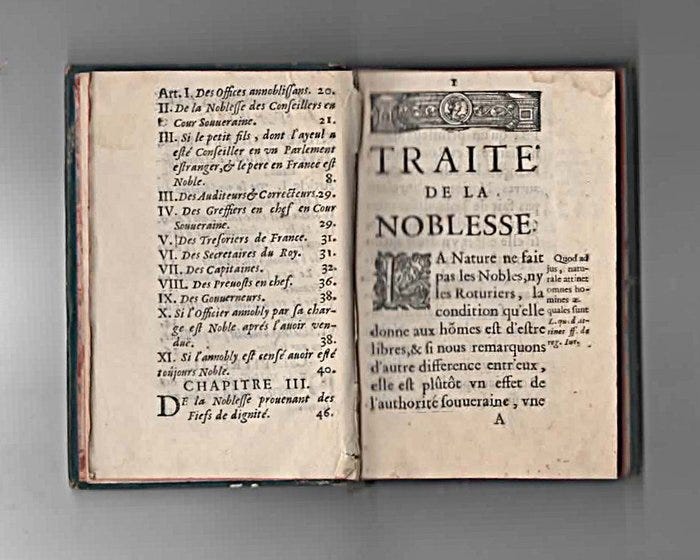 Art. I. Des Offices annoblissans. 20.
II. De la Noblesse des Conseillers en
Cour Souueraine. 21.
III. Si le petit fils, dont l'ayeul a
esté Conseiller en vn Parlement
estranger, & le pere en France est
Noble. 8.
III. Des Auditeurs & Correcteurs. 29.
IV. Des Greffiers en chef en Cour
Souueraine. 29.
V. Des Tresoriers de France. 31.
VI. Des Secretaires du Roy. 31.
VII. Des Capitaines. 32.
VIII. Des Preuosts en chef. 36.
IX. Des Gouuerneurs. 38.
X. Si l'Officier annobly par sa char-
ge est Noble aprés l'auoir ven-
due. 38.
XI. Si l'annobly est censé auoir esté
toûjours Noble. 40.
CHAPITRE III.
DE la Noblesse prouenant des
Fiefs de dignité. 46.
1
TRAITE'
DE LA
NOBLESSE.
LA Nature ne fait
pas les Nobles, ny
les Roturiers, la
condition qu'elle
donne aux hõmes est d'estre
libres, & si nous remarquons
d'autre difference entr'eux,
elle est plûtôt vn effet de
l'authorité souueraine, vne
Quod ad
jus, natu-
rale attinet
omnes ho-
mines æ-
quales sunt
L. quod at-
tinet ff. de
reg. Iur.
A